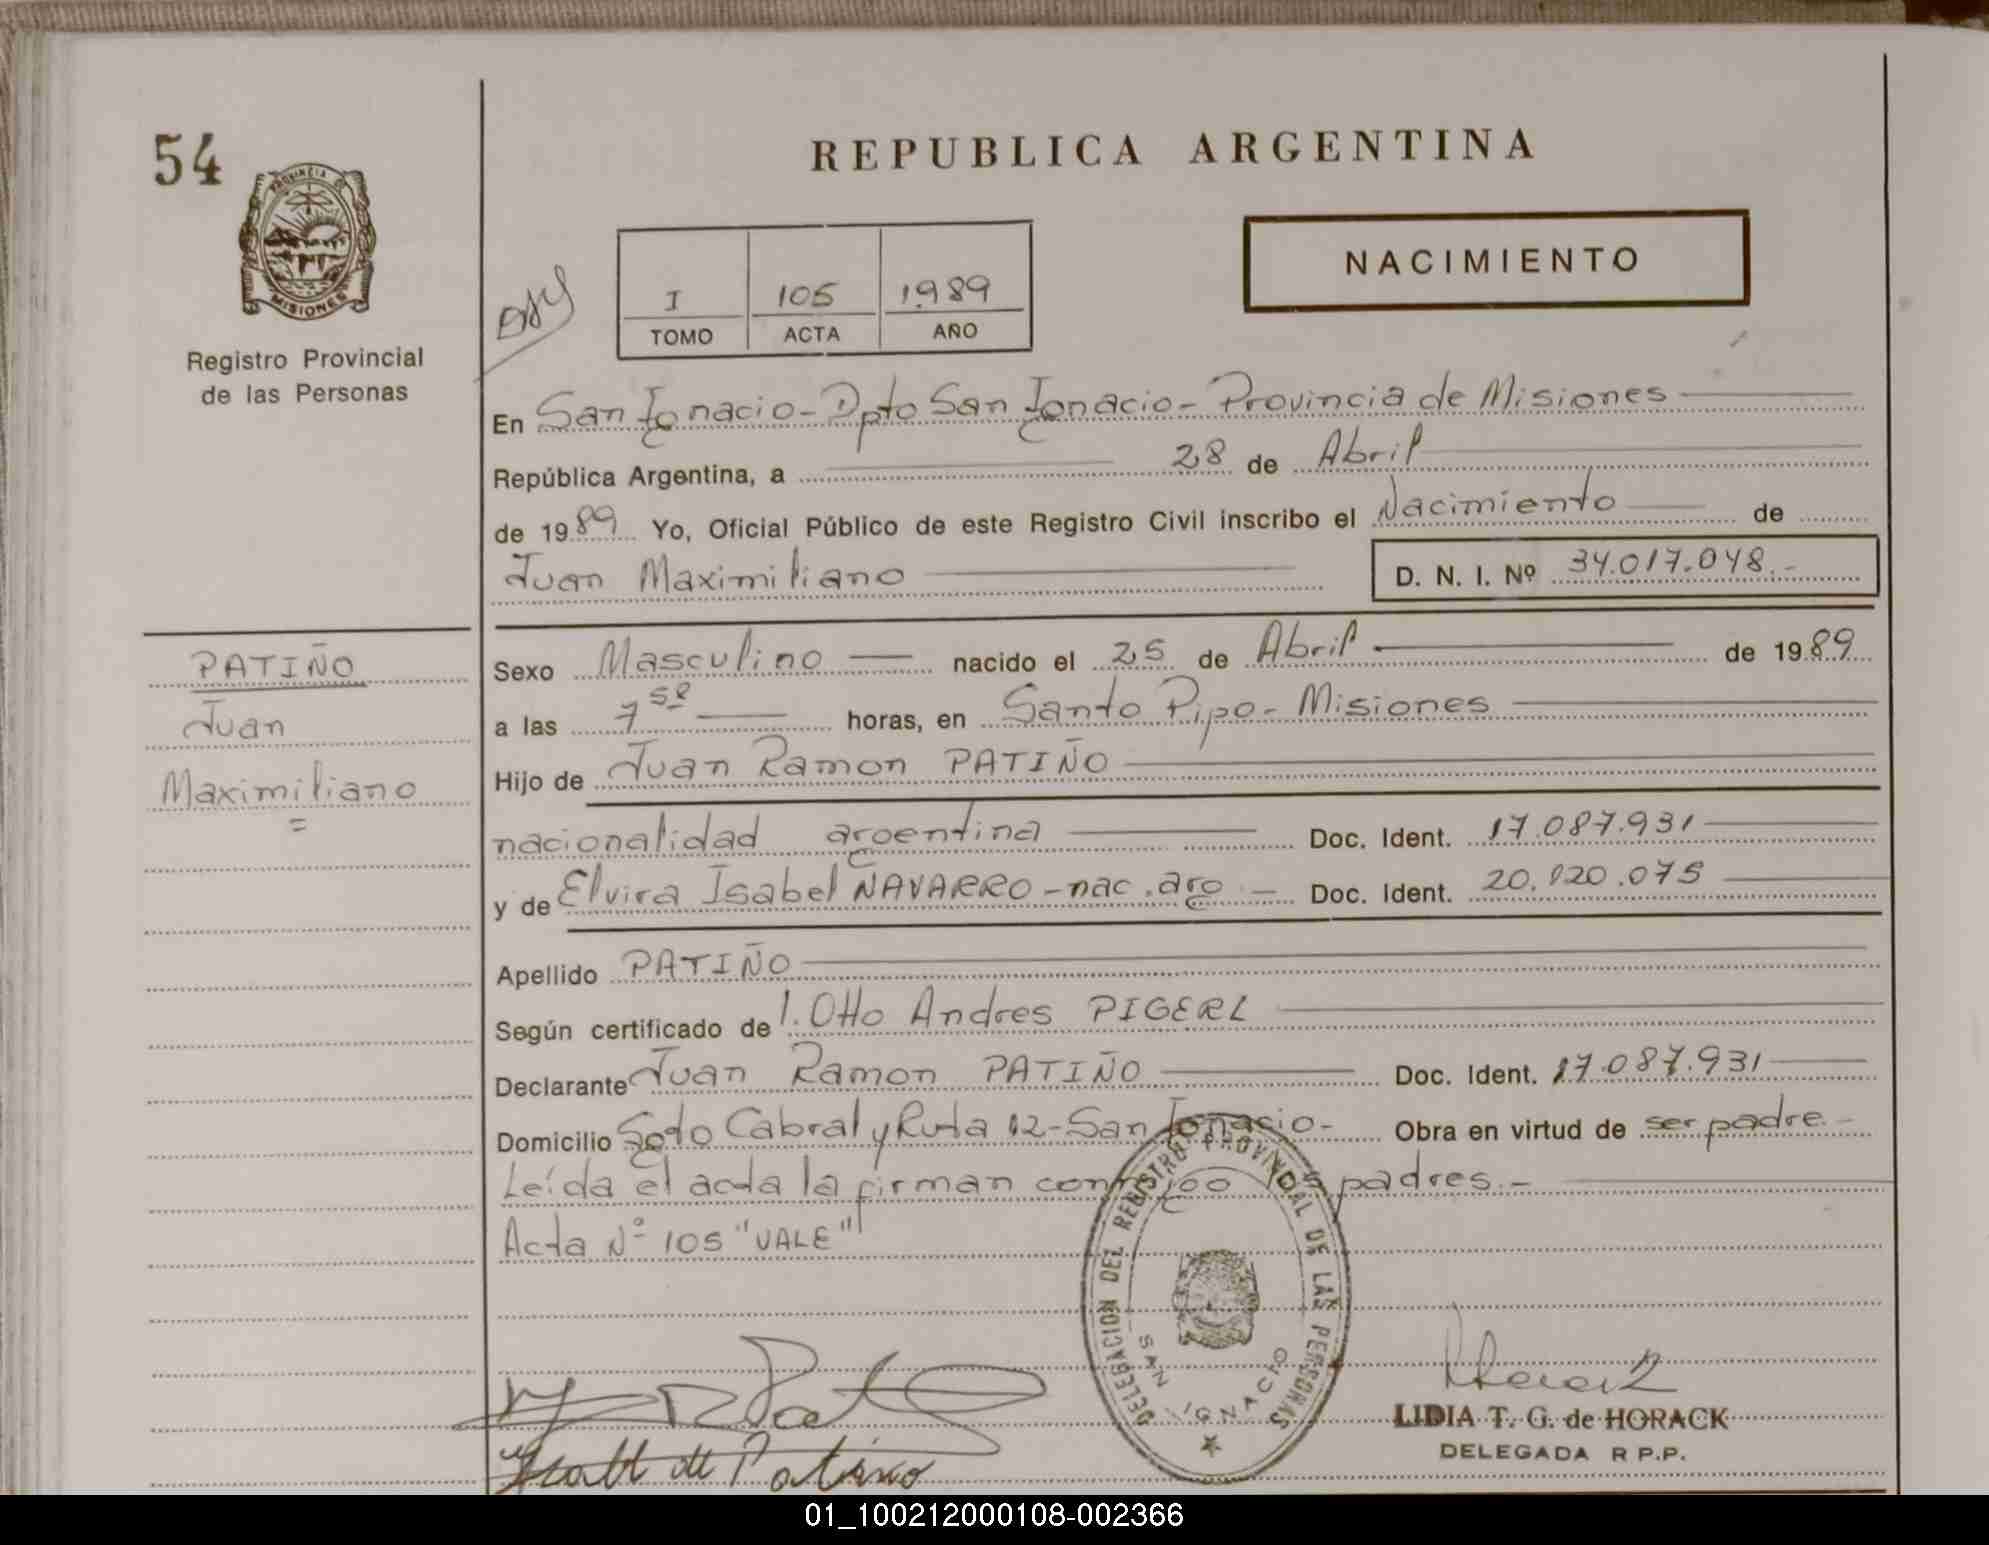 54
PROVINCIA DE
MISIONES
Registro Provincial
de las Personas
REPUBLICA ARGENTINA
NACIMIENTO
I 105 1989
TOMO ACTA AÑO
En San Ignacio - Dpto San Ignacio - Provincia de Misiones
República Argentina, a 28 de Abril
de 1989 Yo, Oficial Público de este Registro Civil inscribo el Nacimiento de
Juan Maximiliano D. N. I. Nº 34.017.048.-
PATIÑO
Juan
Maximiliano
=
Sexo Masculino nacido el 25 de Abril de 1989
a las 7 50 horas, en Santo Pipo - Misiones
Hijo de Juan Ramon PATIÑO
nacionalidad argentina Doc. Ident. 17.087.931
y de Elvira Isabel NAVARRO - nac. arg - Doc. Ident. 20.120.075
Apellido PATIÑO
Según certificado de 1. Otto Andres PIGERL
Declarante Juan Ramon PATIÑO Doc. Ident. 17.087.931
Domicilio Sgto Cabral y Ruta 12 - San Ignacio - Obra en virtud de ser padre.-
Leída el acta la firman conmigo los padres.-
Acta Nº 105 "VALE"
DELEGACION DEL REGISTRO PROVINCIAL DE LAS PERSONAS
SAN IGNACIO
LIDIA T. G. de HORACK
DELEGADA R P.P.
de Patiño
01_100212000108-002366